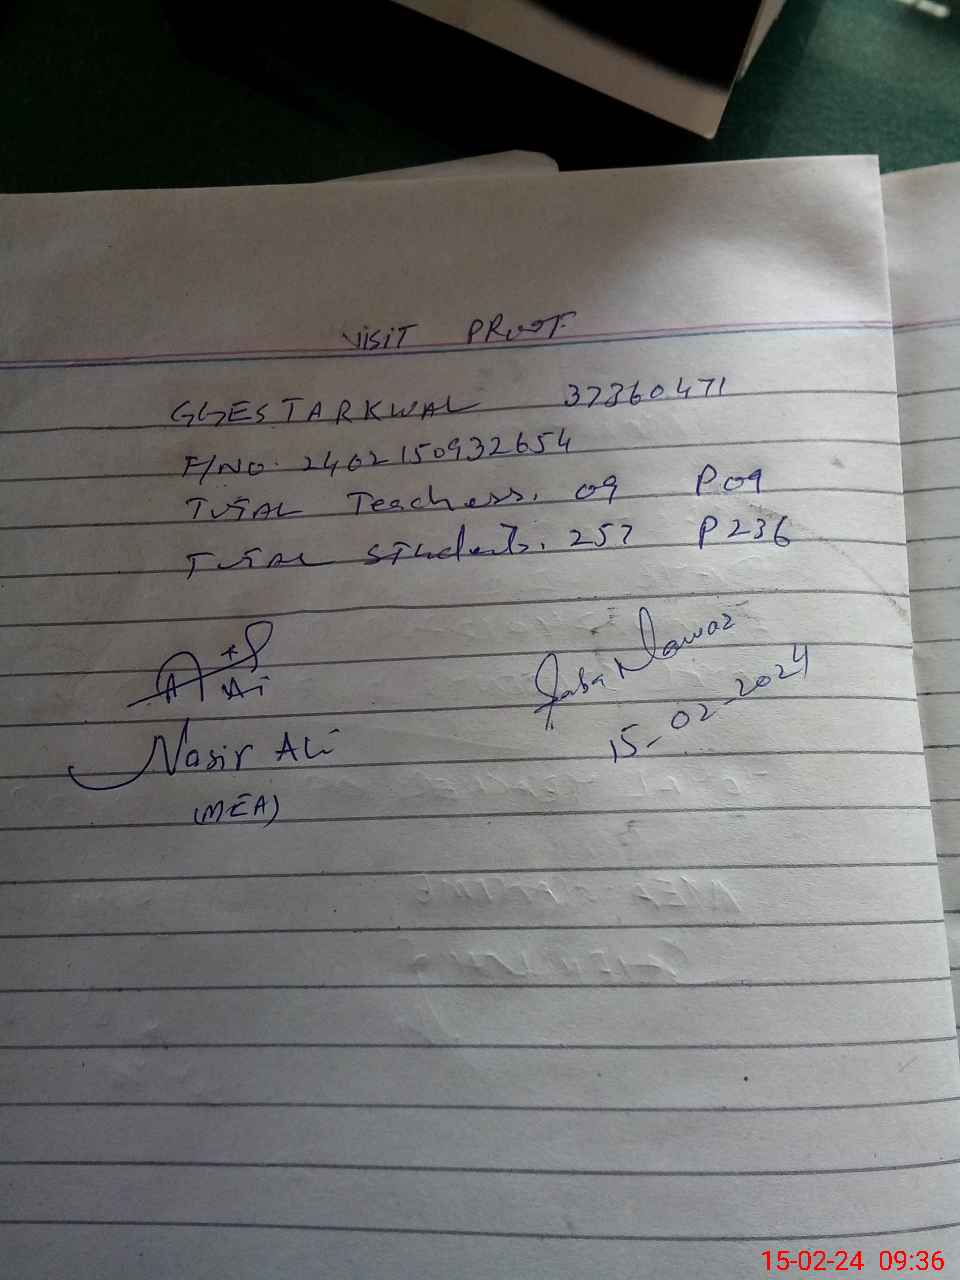 VISIT PROOF
GGES TARKWAL 37360471
F/NO. 2402150932654
TOTAL Teachers. 09 P 09
TOTAL Students. 257 P 236
Nawaz
Nasir Ali
15-02-2024
(MEA)
15-02-24 09:36